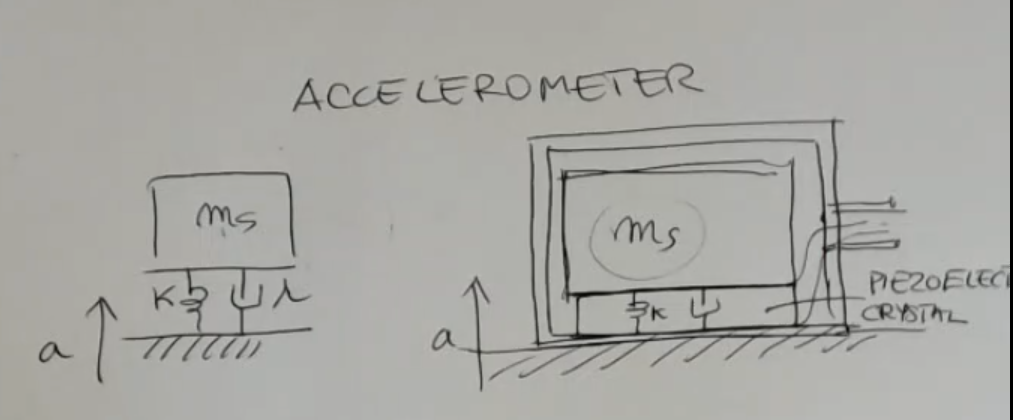 ACCELEROMETER
ms
K
a
ms
K
a
PIEZOELECT
CRYSTAL